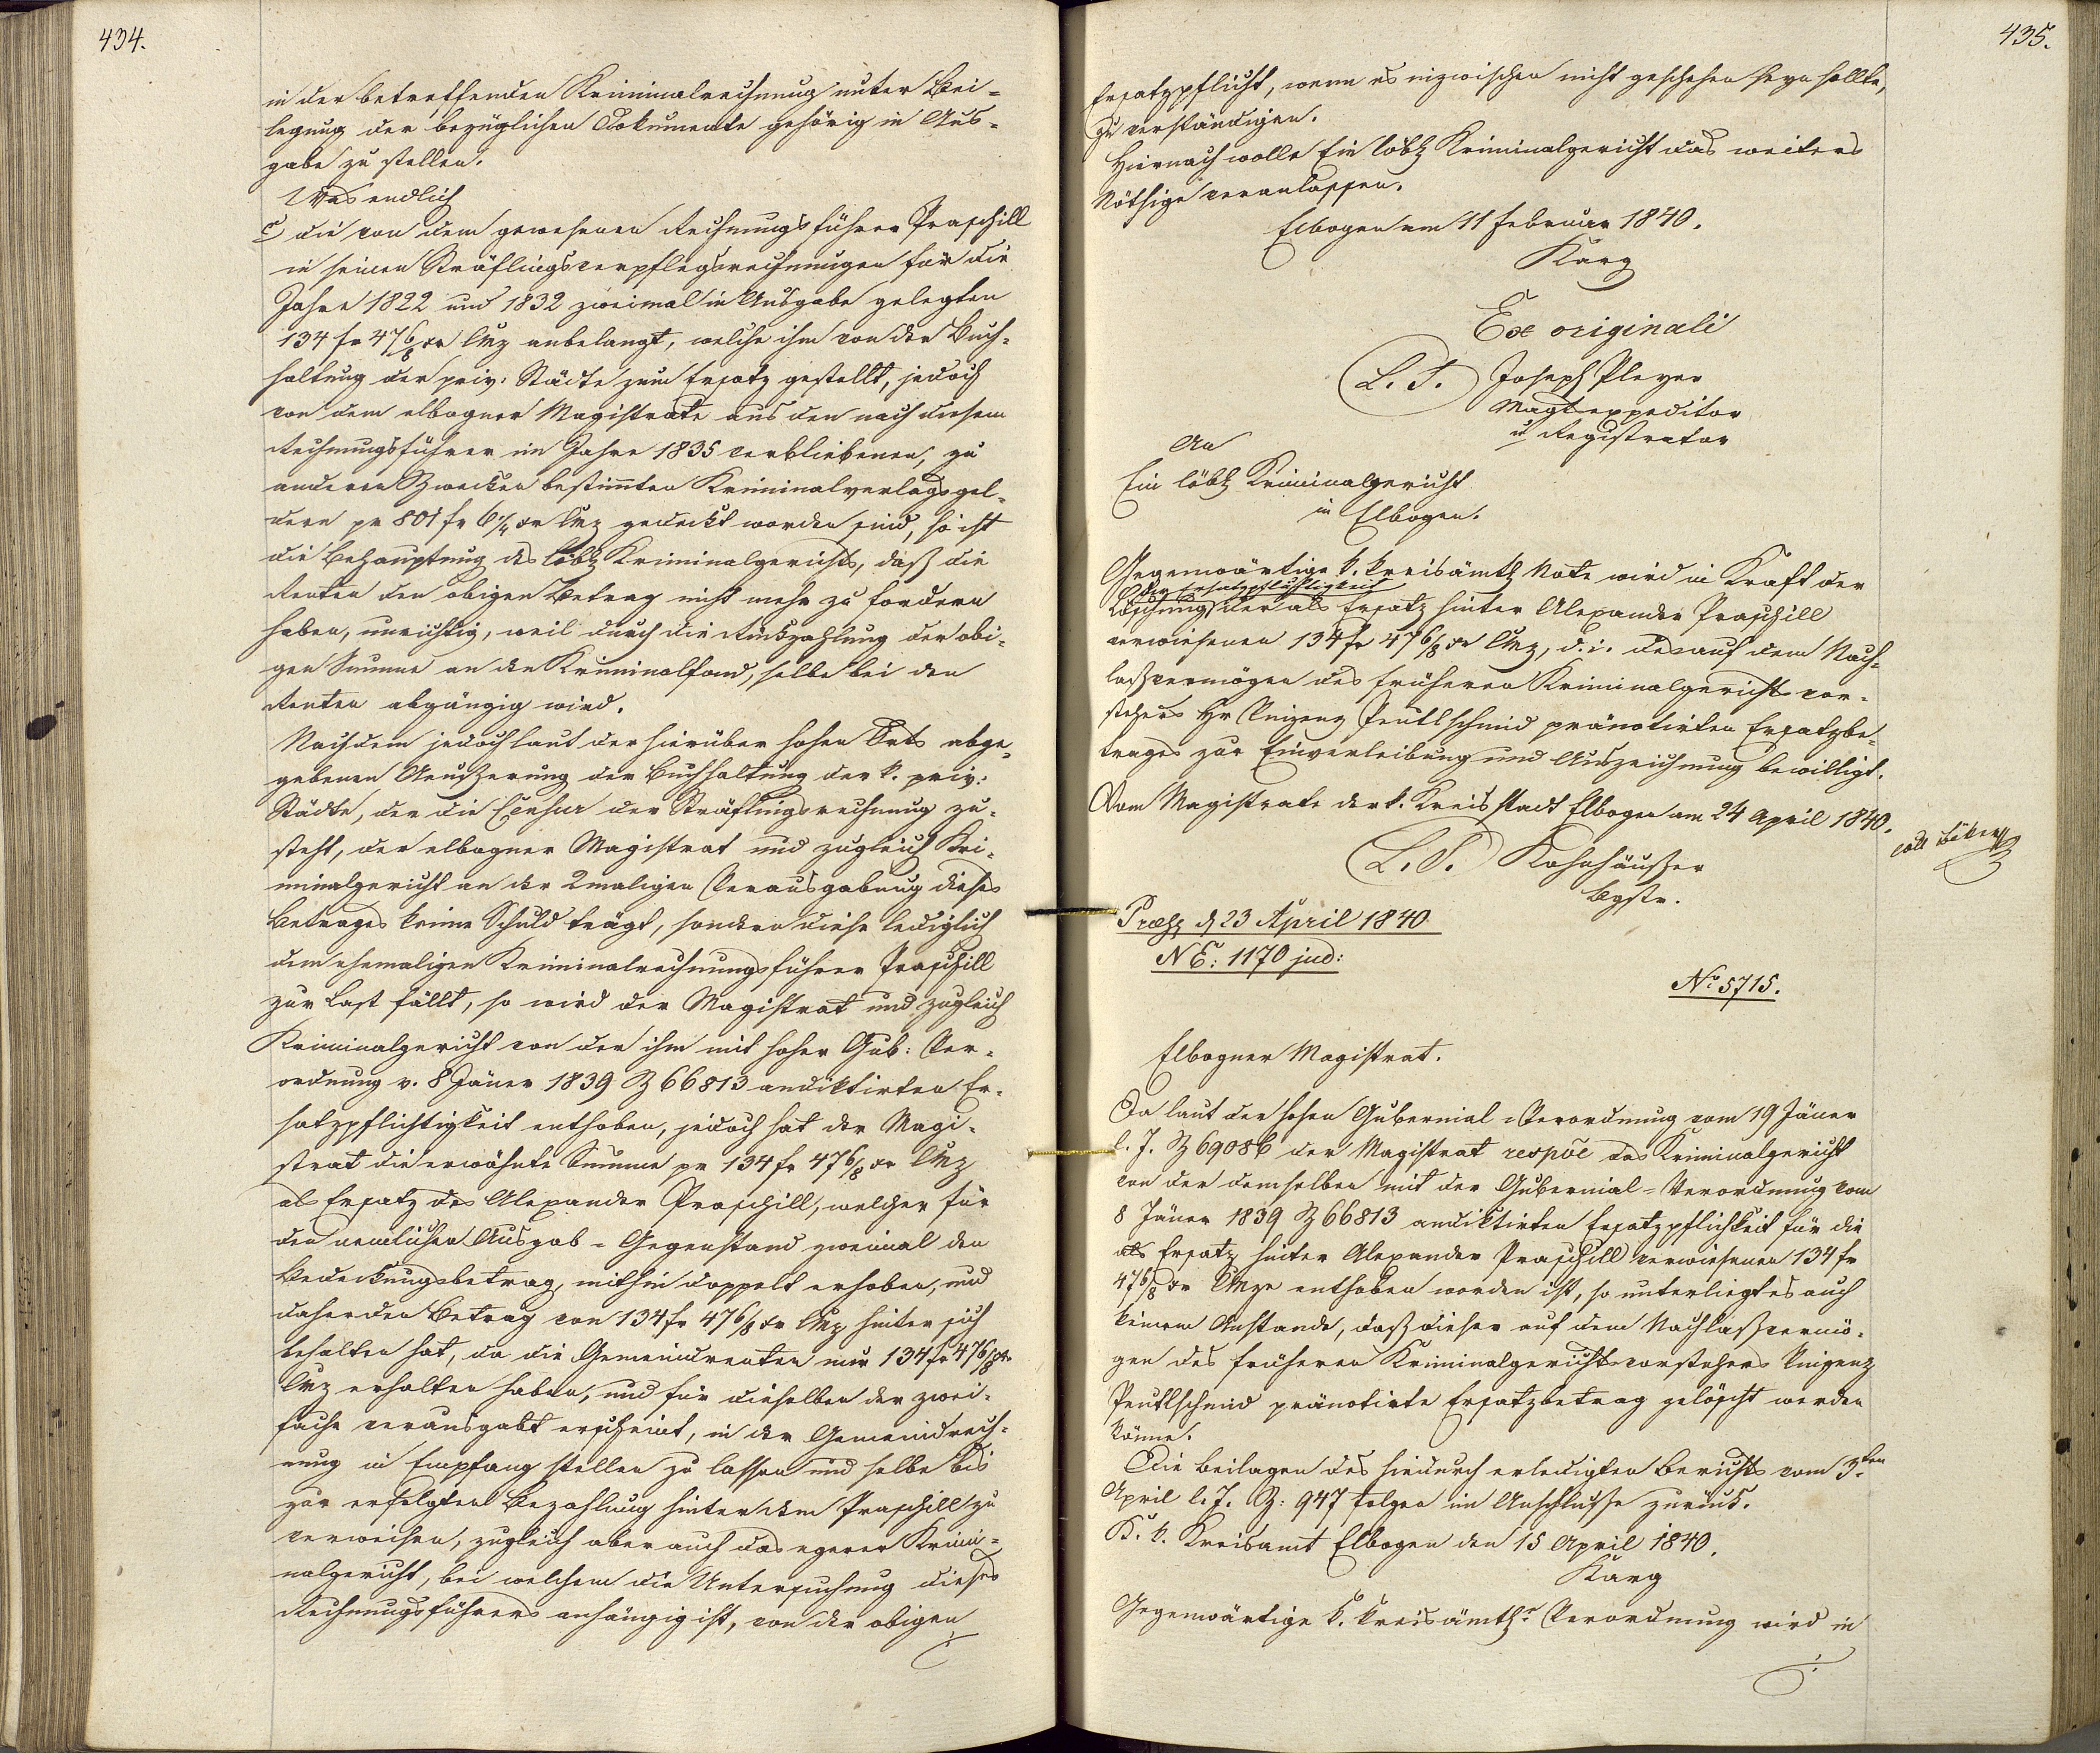 434.
in der betreffenden Kriminalrechnung unter Bei-
legung der bezüglichen Dokumente gehörig in Aus-
gabe zu stellen.
Was endlich
c die von dem gewesenen Rechnungsführer Praschill
in seinen Sträflingsverpflegsrechnungen für die
Jahre 1822 und 1832 zweimal in Ausgabe gelegten
134 fr 47 6/8 xr CMz anbelangt, welche ihm von der Buch-
haltung der priv: Städte zum Ersatz gestellt, jedoch
von dem elbogner Magistrate aus den nach diesem
Rechnungsführer im Jahre 1835 verbliebenen, zu
anderen Zwecken bestimten Kriminalverlagsgel-
dern pr 801 fr 6 1/4 xr CMz gedeckt worden sind, so ist
die Behauptung des löbl Kriminalgerichts, daß die
Renten den obigen Betrag nicht mehr zu fordern
haben, unrichtig, weil durch die Rückzahlung der obi-
gen Summe an den Kriminalfond, selbe bei den
Renten abgängig wird.
Nachdem jedoch laut der hierüber hohen Orts abge-
gebenen Aeußerung der Buchhaltung der k. priv:
Städte, der die Censur der Sträflingsrechnung zu-
steht, der elbogner Magistrat und zugleich Kri-
minalgericht an der 2maligen Verausgabung dieses
Betrages keine Schuld trägt, sondern diese lediglich
dem ehemaligen Kriminalrechnungsführer Praschill
zur Last fällt, so wird der Magistrat und zugleich
Kriminalgericht von der ihm mit hoher Gub: Ver-
ordnung v. 8 Jäner 1839 Z 66813 andiktirten Er-
satzpflichtigkeit enthoben, jedoch hat der Magi-
strat die erwähnte Summe pr 134 fr 47 6/8 xr CMz
als Ersatz des Alexander Praschill, welcher für
den nemlichen Ausgab-Gegenstand zweimal den
Bedeckungsbetrag, mithin doppelt erhoben, und
daher den Betrag von 134 fr 47 6/8 xr CMz hinter sich
behalten hat, da die Gemeindrenten nur 134 fr 47 6/8 xr
CMz erhalten haben, und für dieselben der zwei-
fache verausgabt erscheint, in der Gemeindrech-
nung in Empfang stellen zu lassen und selbe bis
zur erfolgten Bezahlung hinter dem Praschill zu
verweisen, zugleich aber auch das egerer Krimi-
nalgericht, bei welchem die Untersuchung dieses
Rechnungsführers anhängig ist, von der obigen
435.
Ersatzpflicht, wenn es inzwischen nicht geschehen seyn sollte,
zu verständigen.
Hiernach wolle Ein löbl Kriminalgericht das weiters
Nöthige veranlassen.
Elbogen am 11 Februar 1840.
Karg
Ex originali
L. S. Joseph Pleyer
Magtexpeditor
u Registrator
An
Ein löbl Kriminalgericht
in Elbogen.
Gegenwärtige k. kreisämtl Note wird in Kraft der
der Ersatzpflichtigkeit
Löschung der als Ersatz hinter Alexander Praschill
verwiesenen 134 fr 47 6/8 xr CMz, d. i. des auf dem Nach-
laßvermögen des früheren Kriminalgerichts vor-
stehers Hr Vinzenz Peutlschmid pränotirten Ersatzbe-
trages zur Einverleibung und Auszeichnung bewilligt.
Vom Magistrate der k. Kreisstadt Elbogen am 24 April 1840.
L. S. Kohnhäußer
Bgstr.
Præs d 23 April 1840
NE: 1170 jud:
No 5715.
Elbogner Magistrat.
Da laut der hohen Gubernial-Verordnung vom 19 Jäner
l. J. Z 69086 der Magistrat respve das Kriminalgericht
von der demselben mit der Gubernial-Verordnung vom
8 Jäner 1839 Z 66813 andiktirten Ersatzpflichtkeit für die
als Ersatz hinter Alexander Praschill verwiesenen 134 fr
47 6/8 xr CMze enthoben worden ist, so unterliegt es auch
keinem Anstande, daß dieser auf dem Nachlaßvermö-
gen des früheren Kriminalgerichtsvorstehers Vinzenz
Peutlschmid pränotirte Ersatzbetrag gelöscht werden
könne.
Die Beilagen des hiedurch erledigten Berichts vom 3ten
April l. J. Z: 947 folgen im Anschlusse zurück.
K. k. Kreisamt Elbogen den 15 April 1840.
Karg
Gegenwärtige k. kreisämtlr Verordnung wird in